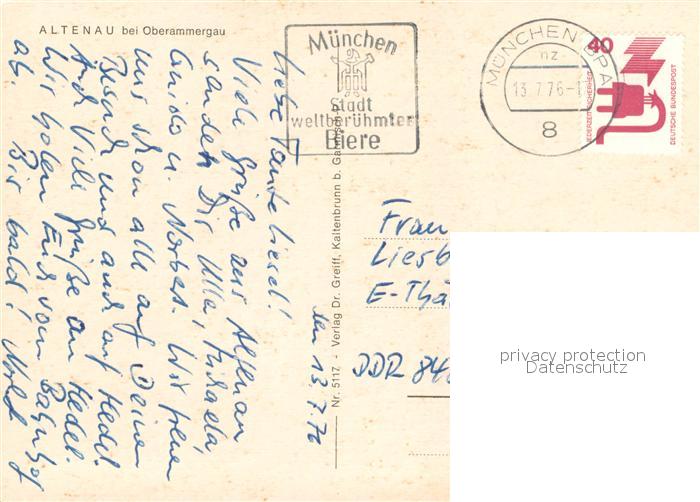 ALTENAU bei Oberammergau
München
Stadt
weltberühmter
Biere
MÜNCHEN BPA
nz
13.7.76-1
8
40
JEDERZEIT SICHERHEIT
DEUTSCHE BUNDESPOST
den 13.7.76
Liebe Tante Liesel!
Viele Grüße aus Altenau
senden Dir Ulla, Michaela,
Guido u. Norbert. Wir freuen
uns schon alle auf Deinen
Besuch und auch auf Hedel.
Auch Viele Grüße an Hedel.
Wir holen Euch vom Bahnhof
ab. Bis bald!
Nr. 5117 - Verlag Dr. Greiff, Kaltenbrunn b. Garmisch-P.
Frau
Liesb
E-Thä
DDR 84
privacy protection
Datenschutz